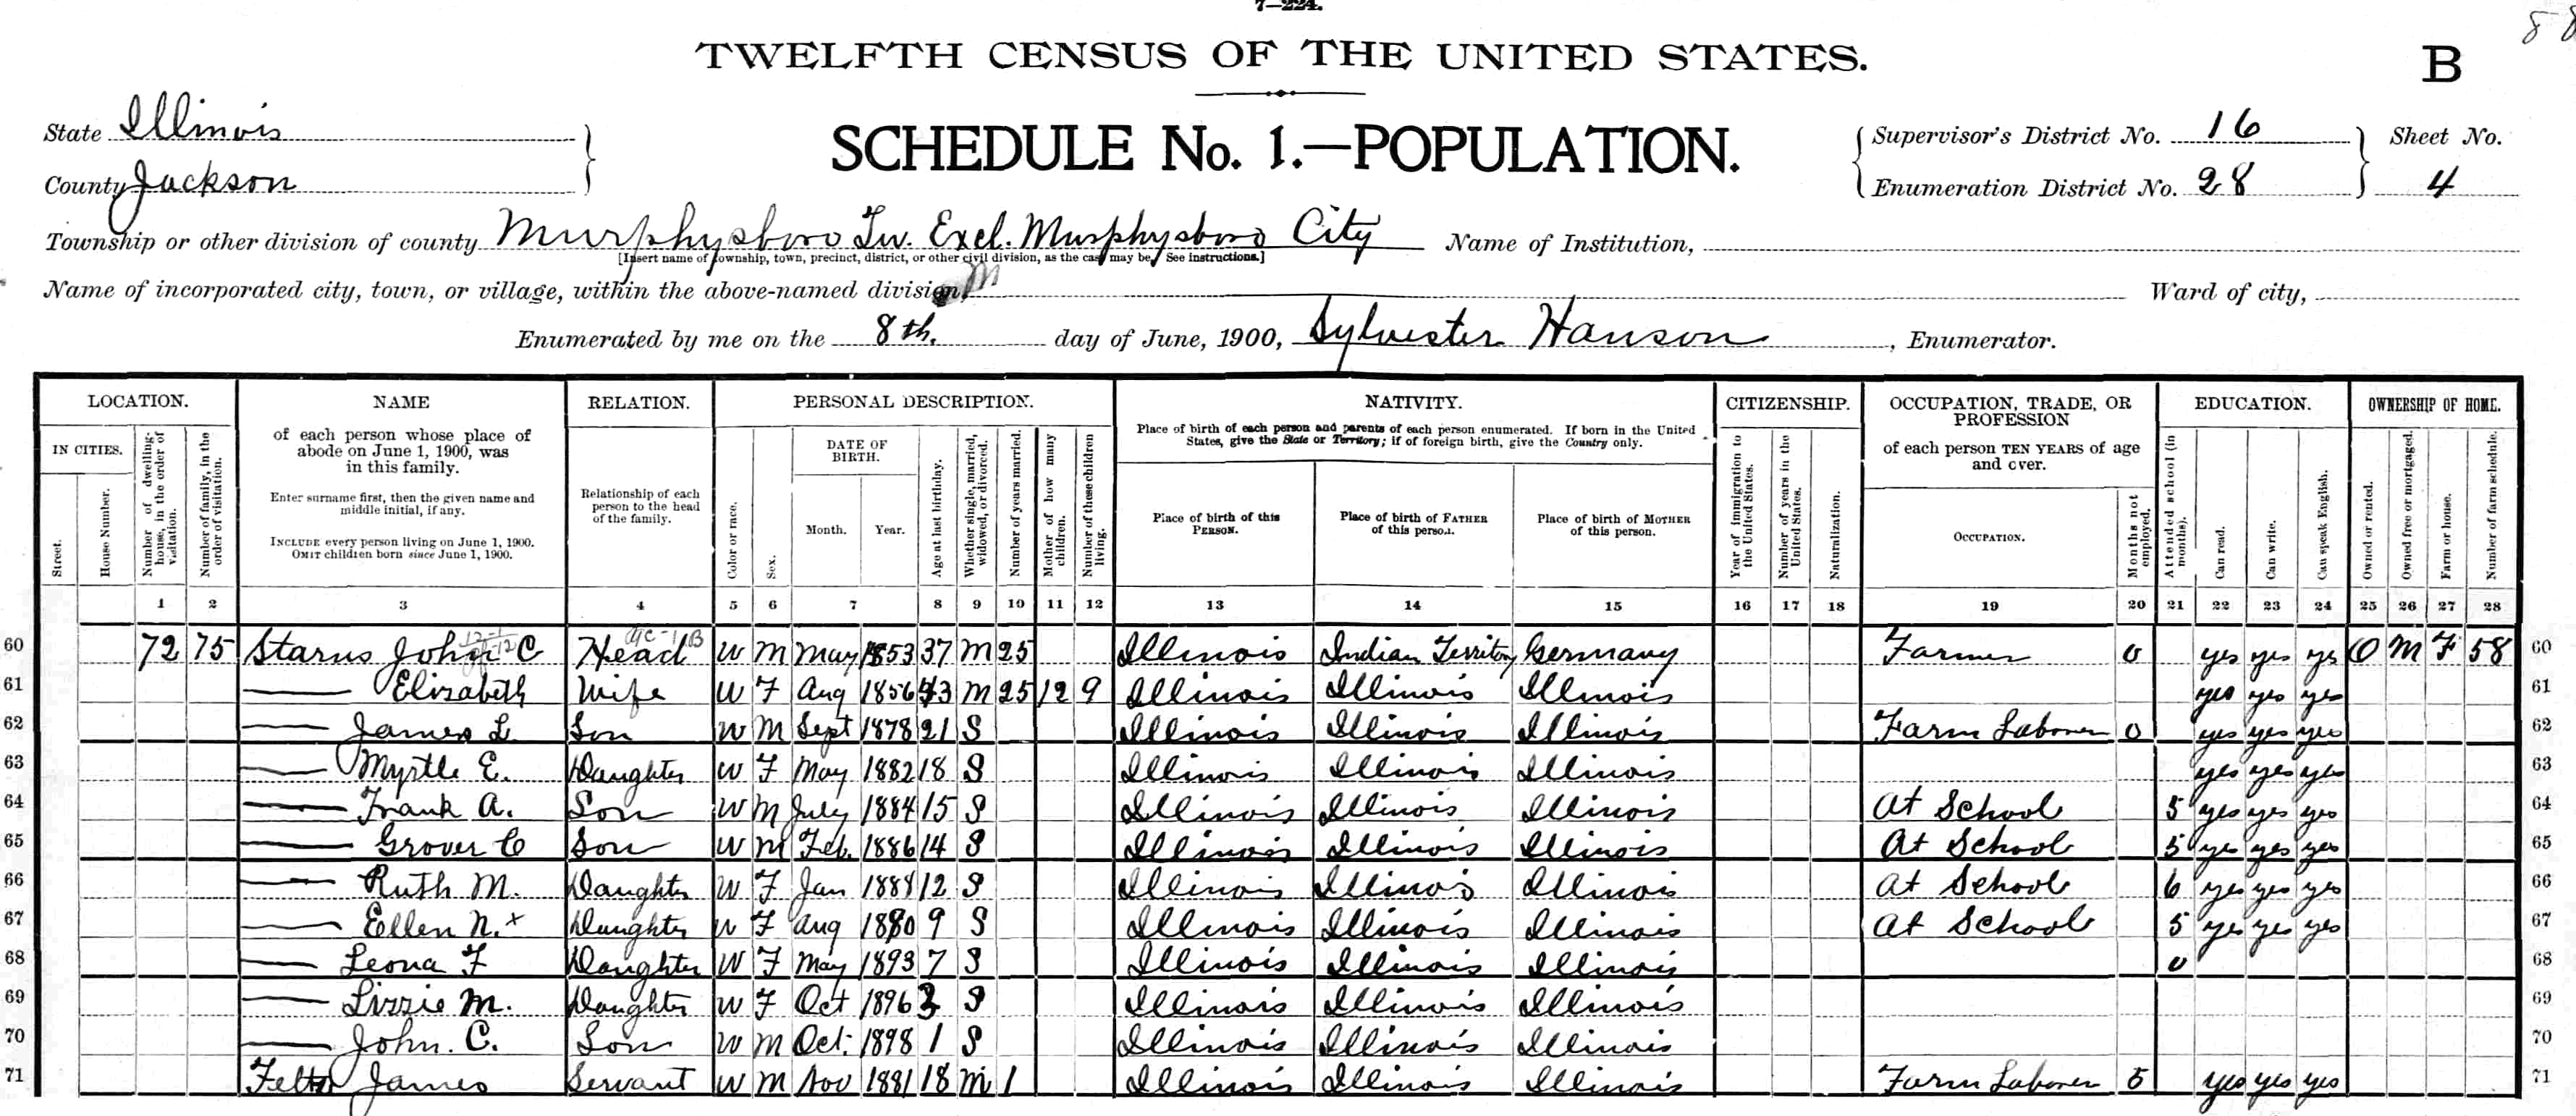 7—224.
88
TWELFTH CENSUS OF THE UNITED STATES.
B
State Illinois
County Jackson
SCHEDULE No. 1.—POPULATION.
Supervisor's District No. 16
Enumeration District No. 28
Sheet No.
4
Township or other division of county Murphysboro Tw. Excl. Murphysboro City Name of Institution,
[Insert name of township, town, precinct, district, or other civil division, as the case may be. See instructions.]
Name of incorporated city, town, or village, within the above-named division, M Ward of city,
Enumerated by me on the 8th. day of June, 1900, Sylvester Hanson, Enumerator.
LOCATION. NAME RELATION. PERSONAL DESCRIPTION. NATIVITY. CITIZENSHIP. OCCUPATION, TRADE, OR PROFESSION EDUCATION. OWNERSHIP OF HOME.
IN CITIES.
Street.
House Number.
Number of dwelling-house, in the order of visitation.
Number of family, in the order of visitation.
of each person whose place of
abode on June 1, 1900, was
in this family.
Enter surname first, then the given name and
middle initial, if any.
INCLUDE every person living on June 1, 1900.
OMIT children born since June 1, 1900.
Relationship of each
person to the head
of the family.
Color or race.
Sex.
DATE OF BIRTH.
Month. Year.
Age at last birthday.
Whether single, married, widowed, or divorced.
Number of years married.
Mother of how many children.
Number of these children living.
Place of birth of each person and parents of each person enumerated. If born in the United
States, give the State or Territory; if of foreign birth, give the Country only.
Place of birth of this PERSON.
Place of birth of FATHER of this person.
Place of birth of MOTHER of this person.
Year of immigration to the United States.
Number of years in the United States.
Naturalization.
of each person TEN YEARS of age
and over.
OCCUPATION.
Months not employed.
Attended school (in months).
Can read.
Can write.
Can speak English.
Owned or rented.
Owned free or mortgaged.
Farm or house.
Number of farm schedule.
1 2 3 4 5 6 7 8 9 10 11 12 13 14 15 16 17 18 19 20 21 22 23 24 25 26 27 28
60 72 75 Starns John C Head W M May 1853 37 M 25 Illinois Indian Territory Germany Farmer 0 yes yes yes O M F 58 60
61 Elizabeth Wife W F Aug 1856 43 M 25 12 9 Illinois Illinois Illinois yes yes yes 61
62 James L Son W M Sept 1878 21 S Illinois Illinois Illinois Farm Laborer 0 yes yes yes 62
63 Myrtle E. Daughter W F May 1882 18 S Illinois Illinois Illinois yes yes yes 63
64 Frank A. Son W M July 1884 15 S Illinois Illinois Illinois At School 5 yes yes yes 64
65 Grover C Son W M Feb. 1886 14 S Illinois Illinois Illinois At School 5 yes yes yes 65
66 Ruth M. Daughter W F Jan 1888 12 S Illinois Illinois Illinois At School 6 yes yes yes 66
67 Ellen N. x Daughter W F Aug 1890 9 S Illinois Illinois Illinois At School 5 yes yes yes 67
68 Leona F Daughter W F May 1893 7 S Illinois Illinois Illinois 0 68
69 Lizzie M. Daughter W F Oct 1896 3 S Illinois Illinois Illinois 69
70 John. C. Son W M Oct. 1898 1 S Illinois Illinois Illinois 70
71 James Servant W M Nov 1881 18 M 1 Illinois Illinois Illinois Farm Laborer 5 yes yes yes 71